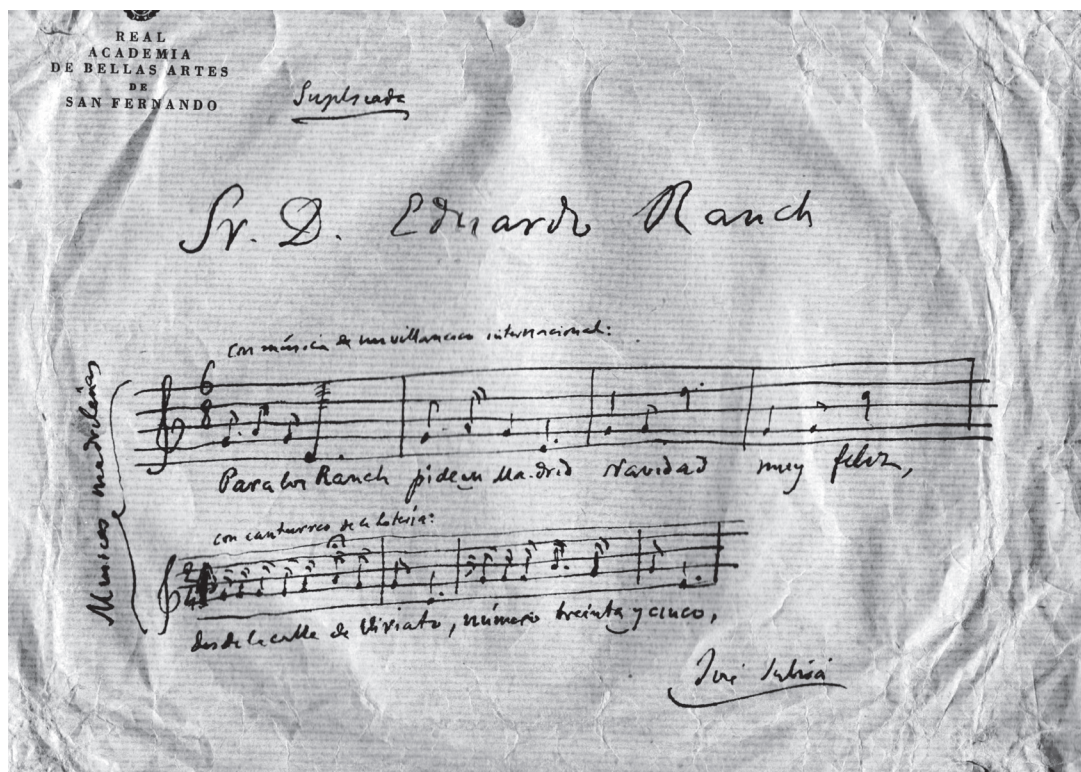 REAL
ACADEMIA
DE BELLAS ARTES
DE
SAN FERNANDO
Suplicada
Sr. D. Eduardo Ranch
Músicas madrileñas
con música de un villancico internacional:
6
8
Para los Ranch piden Madrid Navidad muy feliz,
con canturreo de la lotería:
2
4
desde la calle de Viriato, número treinta y cinco,
José Subirá